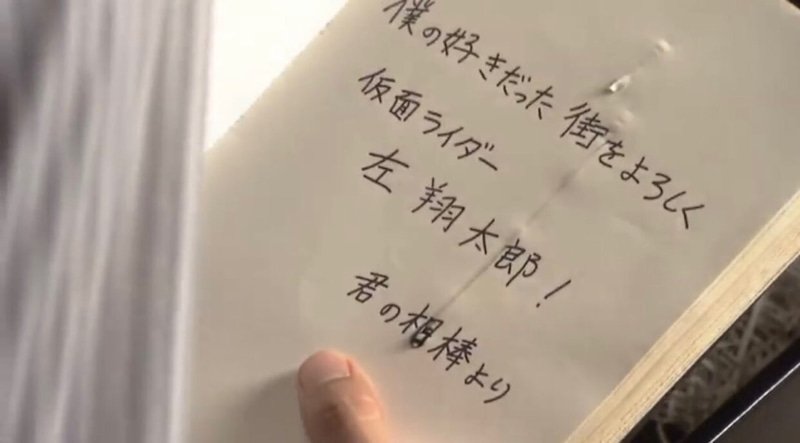 僕の好きだった街をよろしく
仮面ライダー
左翔太郎！
君の相棒より